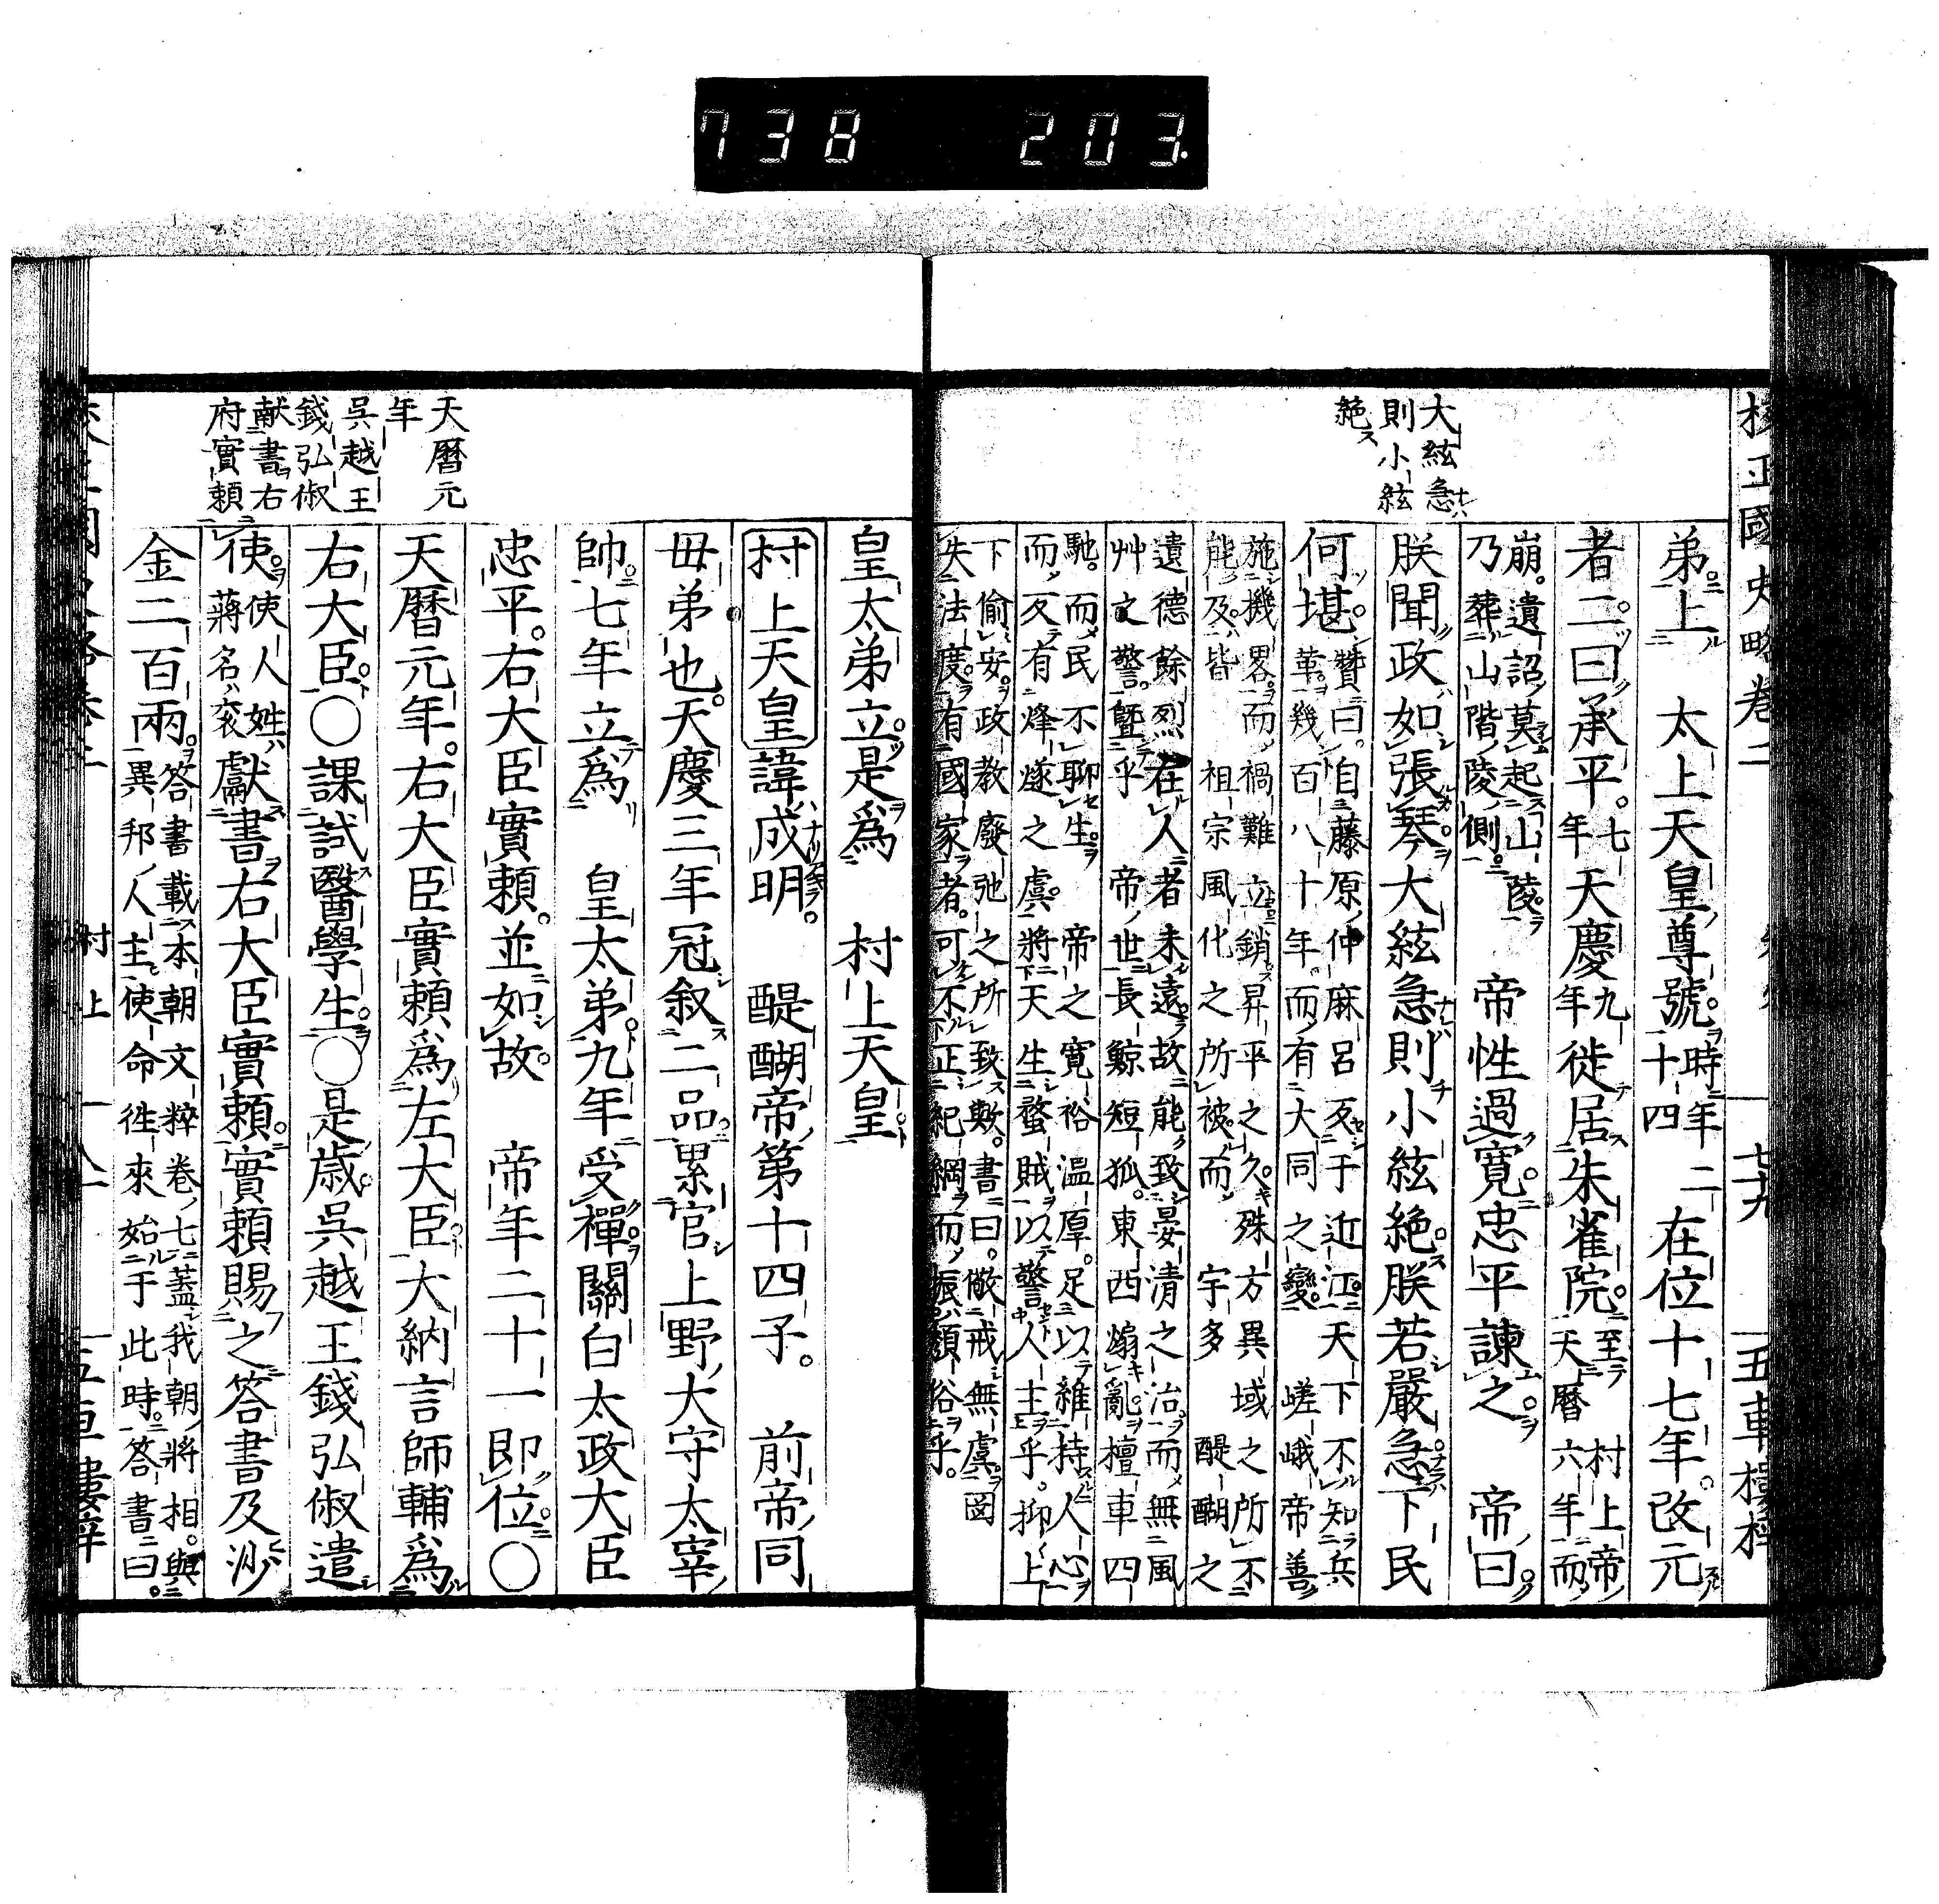 738 203.
校正國史略卷二
七十九
五車樓梓
大絃急
則小絃
絶
弟上 太上天皇尊號時年二十四在位十七年改元
者二曰承平七年天慶九年徙居朱雀院至天曆村上帝六年而
崩遺詔莫起山陵乃葬山階陵側 帝性過寛忠平諫之 帝曰
朕聞政如張琴大絃急則小絃絶朕若嚴急下民
何堪贊曰自藤原仲麻呂反于近江天下不知兵革幾百八十年而有大同之變嵯峨帝善
施機畧而禍難立銷昇平之久殊方異域之所不能及皆 祖宗風化之所被而 宇多 醍醐之
遺德餘烈在人者未遠故能致晏清之治而無風艸之警曁乎 帝世長鯨短狐東西煽亂檀車四
馳而民不聊生 帝之寛裕溫厚足以維持人心而反有烽燧之虞將天生蝥賊以警人主乎抑上
下偷安政教廢弛之所致歟書曰儆戒無虞罔失法度有國家者可不正紀綱而振頽俗乎
皇太弟立是爲 村上天皇
村上天皇諱成明 醍醐帝第十四子 前帝同
毋弟也天慶三年冠叙二品累官上野大守太宰
帥七年立爲 皇太弟九年受禪關白太政大臣
忠平右大臣實賴並如故 帝年二十一即位〇
天曆元年右大臣實賴爲左大臣大納言師輔爲
右大臣〇課試醫學生〇是歳呉越王錢弘俶遣
使使人姓蔣名袞獻書右大臣實賴實賴賜之答書及沙
金二百兩答書載本朝文粹卷七蓋我朝將相與異邦人主使命徃來始于此時答書曰
天曆元
年
呉越王
錢弘俶
献書右
府實賴
村上